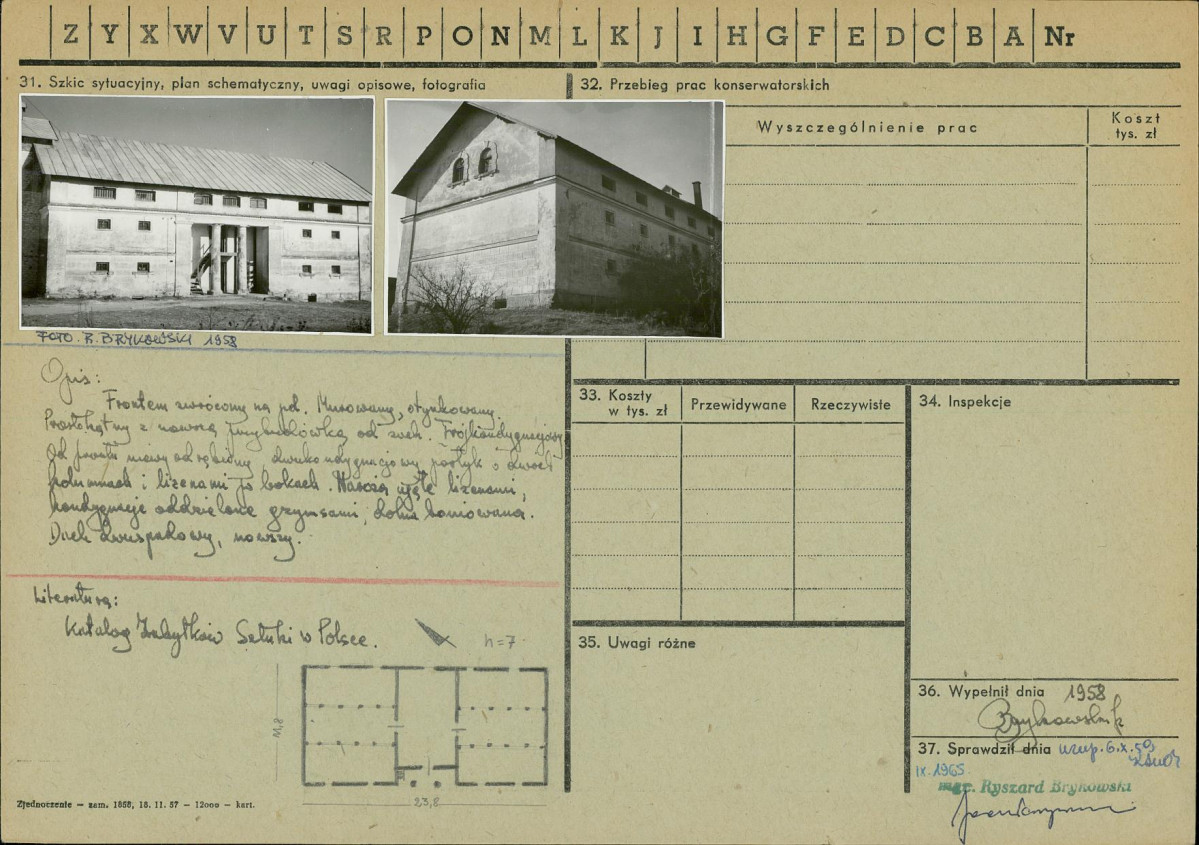 Z Y X W V U T S R P O N M L K J I H G F E D C B A Nr
31. Szkic sytuacyjny, plan schematyczny, uwagi opisowe, fotografia
FOTO. R. BRYKOWSKI 1958
Opis:
Frontem zwrócony na pd. Murowany, otynkowany.
Prostokątny z nowszą przybudówką od zach. Trójkondygnacyjowy
Od frontu dwukondygnacjowy portyk o dwóch
kolumnach i lizenami po bokach. Naroża ujęte lizenami,
kondygnacje oddzielone gzymsami, dolna boniowana.
Dach dwuspadowy, nowszy.
Literatura:
Katalog Zabytków Sztuki w Polsce.
h=7
11,8
23,8
Zjednoczenie — zam. 1858, 18. 11. 57 — 12000 — kart.
32. Przebieg prac konserwatorskich
Wyszczególnienie prac
Koszt
tys. zł
33. Koszty
w tys. zł
Przewidywane
Rzeczywiste
34. Inspekcje
35. Uwagi różne
36. Wypełnił dnia 1958
Brykowski R
37. Sprawdził dnia uzup. 6.X.59
IX.1965
mgr. Ryszard Brykowski